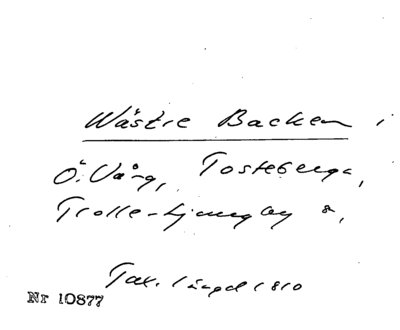 Wästre Backen i
Ö. Vång, Tosteberga,
Trolle-Ljungby s.
Tax. längd 1810
Nr 10877